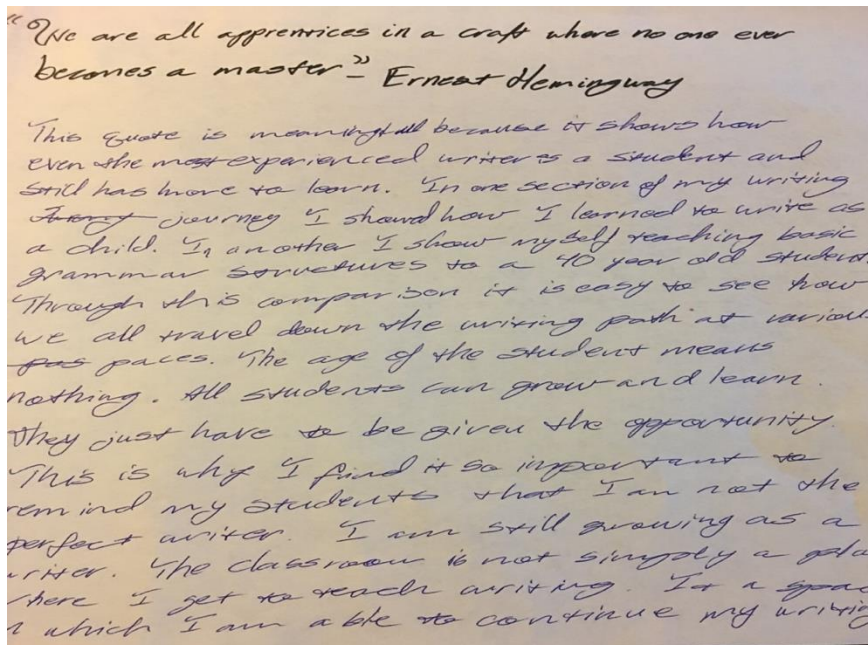 "We are all apprentices in a craft where no one ever
becomes a master" - Ernest Hemingway
This quote is meaningful because it shows how
even the most experienced writer is a student and
still has more to learn. In one section of my writing
journey I showed how I learned to write as
a child. In another I show myself teaching basic
grammar structures to a 40 year old student.
Through this comparison it is easy to see how
we all travel down the writing path at various
paces. The age of the student means
nothing. All students can grow and learn.
They just have to be given the opportunity.
This is why I find it so important to
remind my students that I am not the
perfect writer. I am still growing as a
writer. The classroom is not simply a pla
where I get to teach writing. It a spac
which I am able to continue my writing